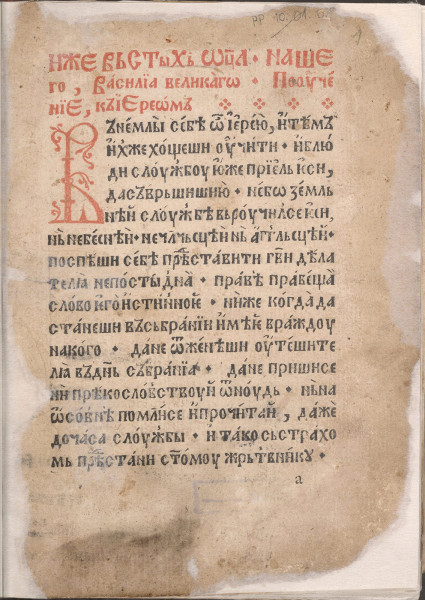 PP 10.01.
1
иже вьстыⷯхь ѿца · наше
го, василїа великагѡ · Поꙋче
нїе, кьіереѡмь
Вънемлы себѣ ѽ їерею, и тъмь
ихже хощеши оучити · и блю
ди слоужбоу юже прїель еси,
да съвръшишию · небо земль
нѣй слоужбѣ вьроучилсе еси,
нь небеснѣй · не члчьсцѣй нь агг҃льсцѣй ·
поспѣши себѣ прѣставити гв҃и дѣла
телıа непостыдна · правѣ правеща
слово иего истинноіе · ниже когда да
станеши вьсьбранїи имѣи враждоу
на кого · да не ѿженеши оутѣшите
лıа въ днь събранїа · да не пришнсе
ни прѣкословьствоуй ѿноудь · нь на
ѡсовнѣ помлисе и прочитай, даже
до часа слоужбы · и тако сьстрахо
мь прѣстани ст҃омоу жрьтвнику ·
а